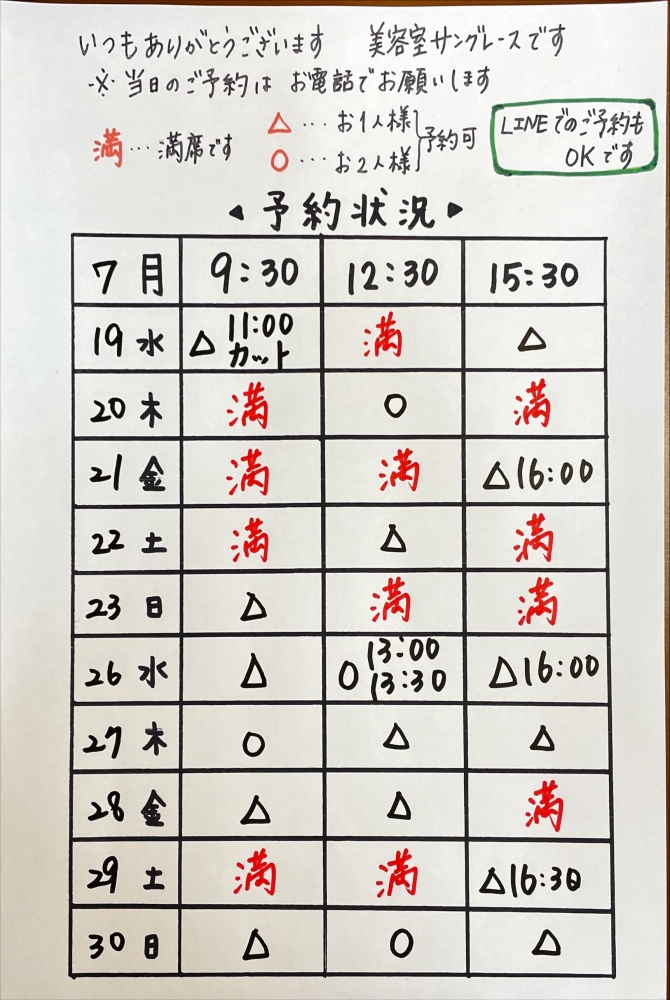 いつもありがとうございます 美容室サングレースです
※当日のご予約は お電話でお願いします
満…満席です
△…お1人様
○…お2人様
予約可
LINEでのご予約も
OKです
◀予約状況▶
7月 9:30 12:30 15:30
19水 △11:00カット 満 △
20木 満 ○ 満
21金 満 満 △16:00
22土 満 △ 満
23日 △ 満 満
26水 △ ○13:00 13:30 △16:00
27木 ○ △ △
28金 △ △ 満
29土 満 満 △16:30
30日 △ ○ △